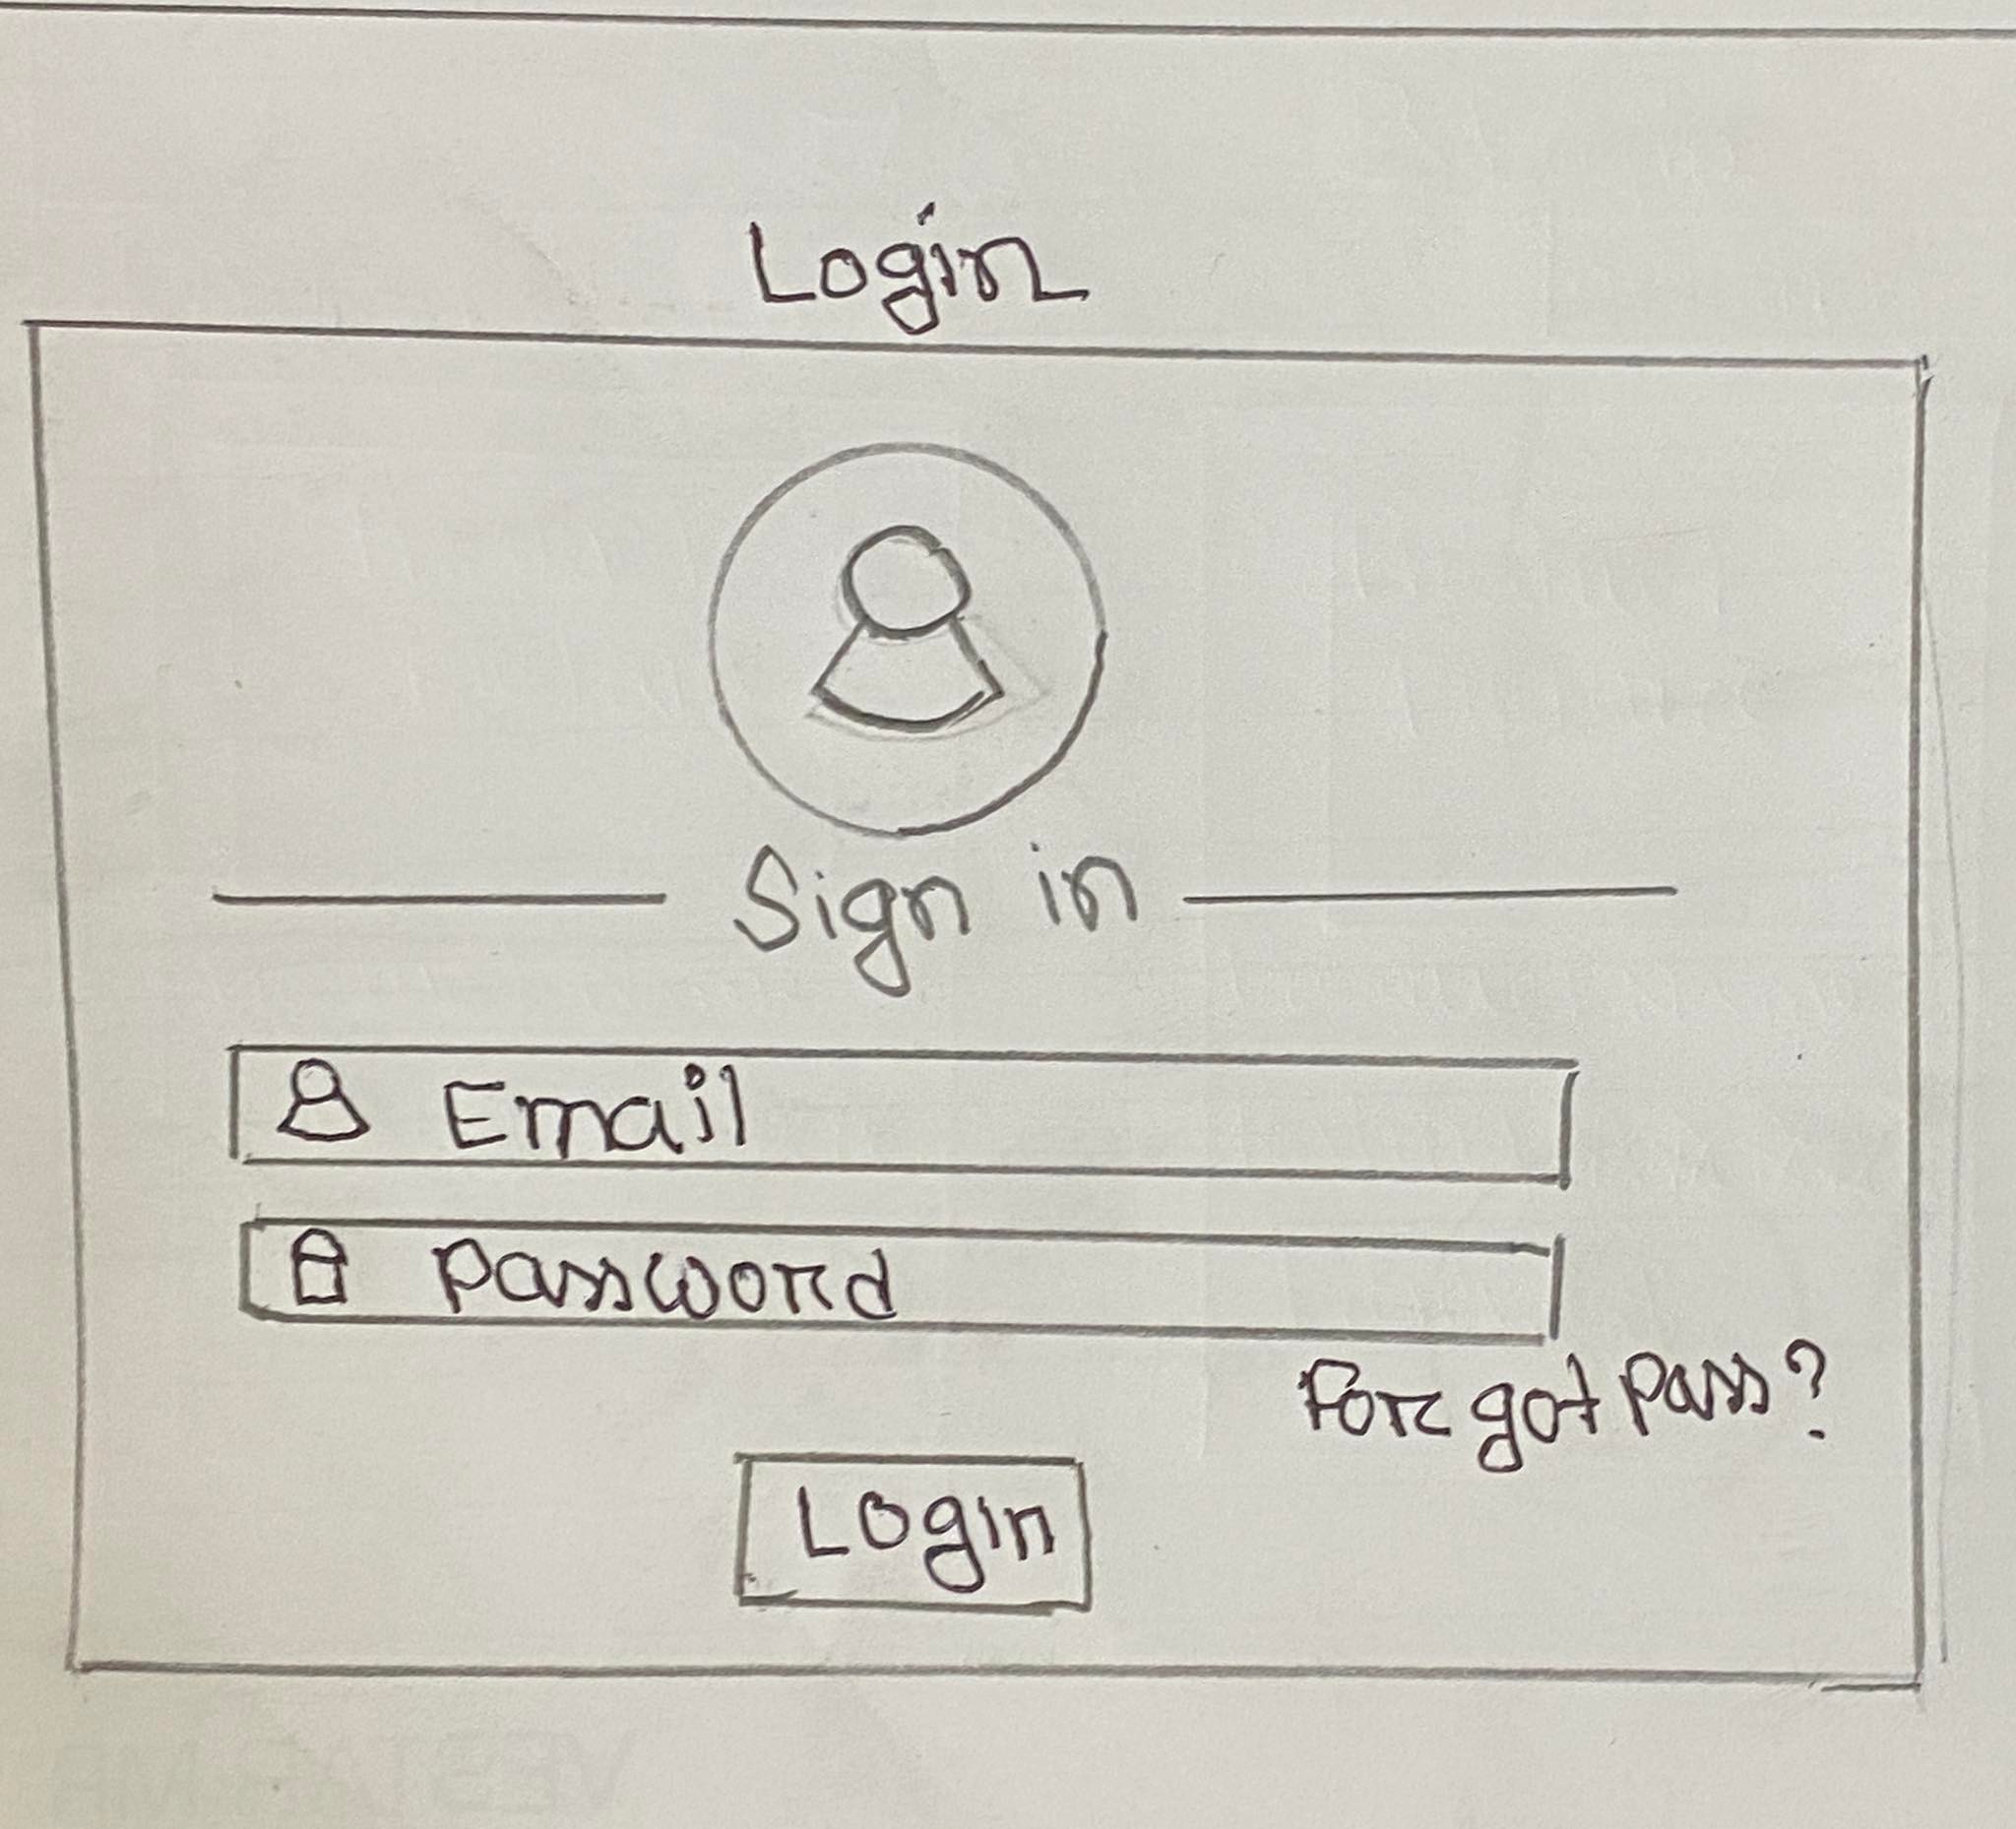 Login
Sign in
Email
Password
Forgot Pass?
Login